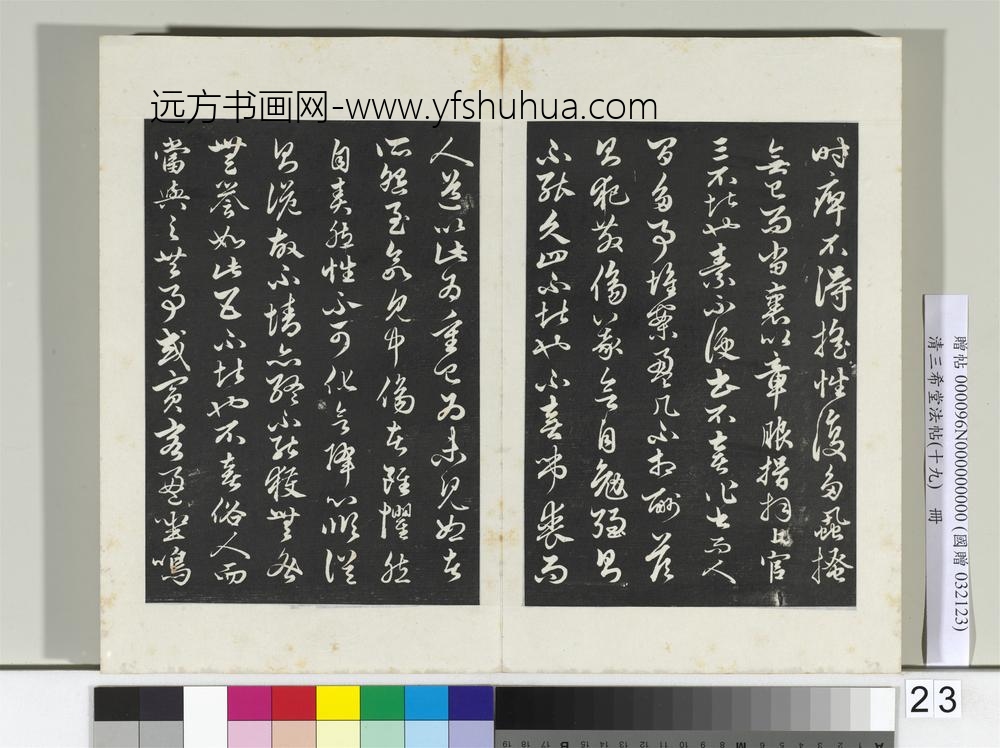 远方书画网-www.yfshuhua.com
時痺不得搖性復多蝨搔
無已而當裹以章服揖拜上官
三不堪也素不便書不喜作書而人
間多事堆案盈几不相酬答
則犯教傷義欲自勉強則
不能久四不堪也不喜弔喪而
人道以此為重已為未見恕者
所怨至欲見中傷者雖懼然
自責然性不可化欲降心順俗
則詭故不情亦終不能獲無咎
無譽如此五不堪也不喜俗人而
當與之共事或賓客盈坐鳴
贈帖 000096N000000000 (國贈 032123)
清三希堂法帖(十九) 冊
23